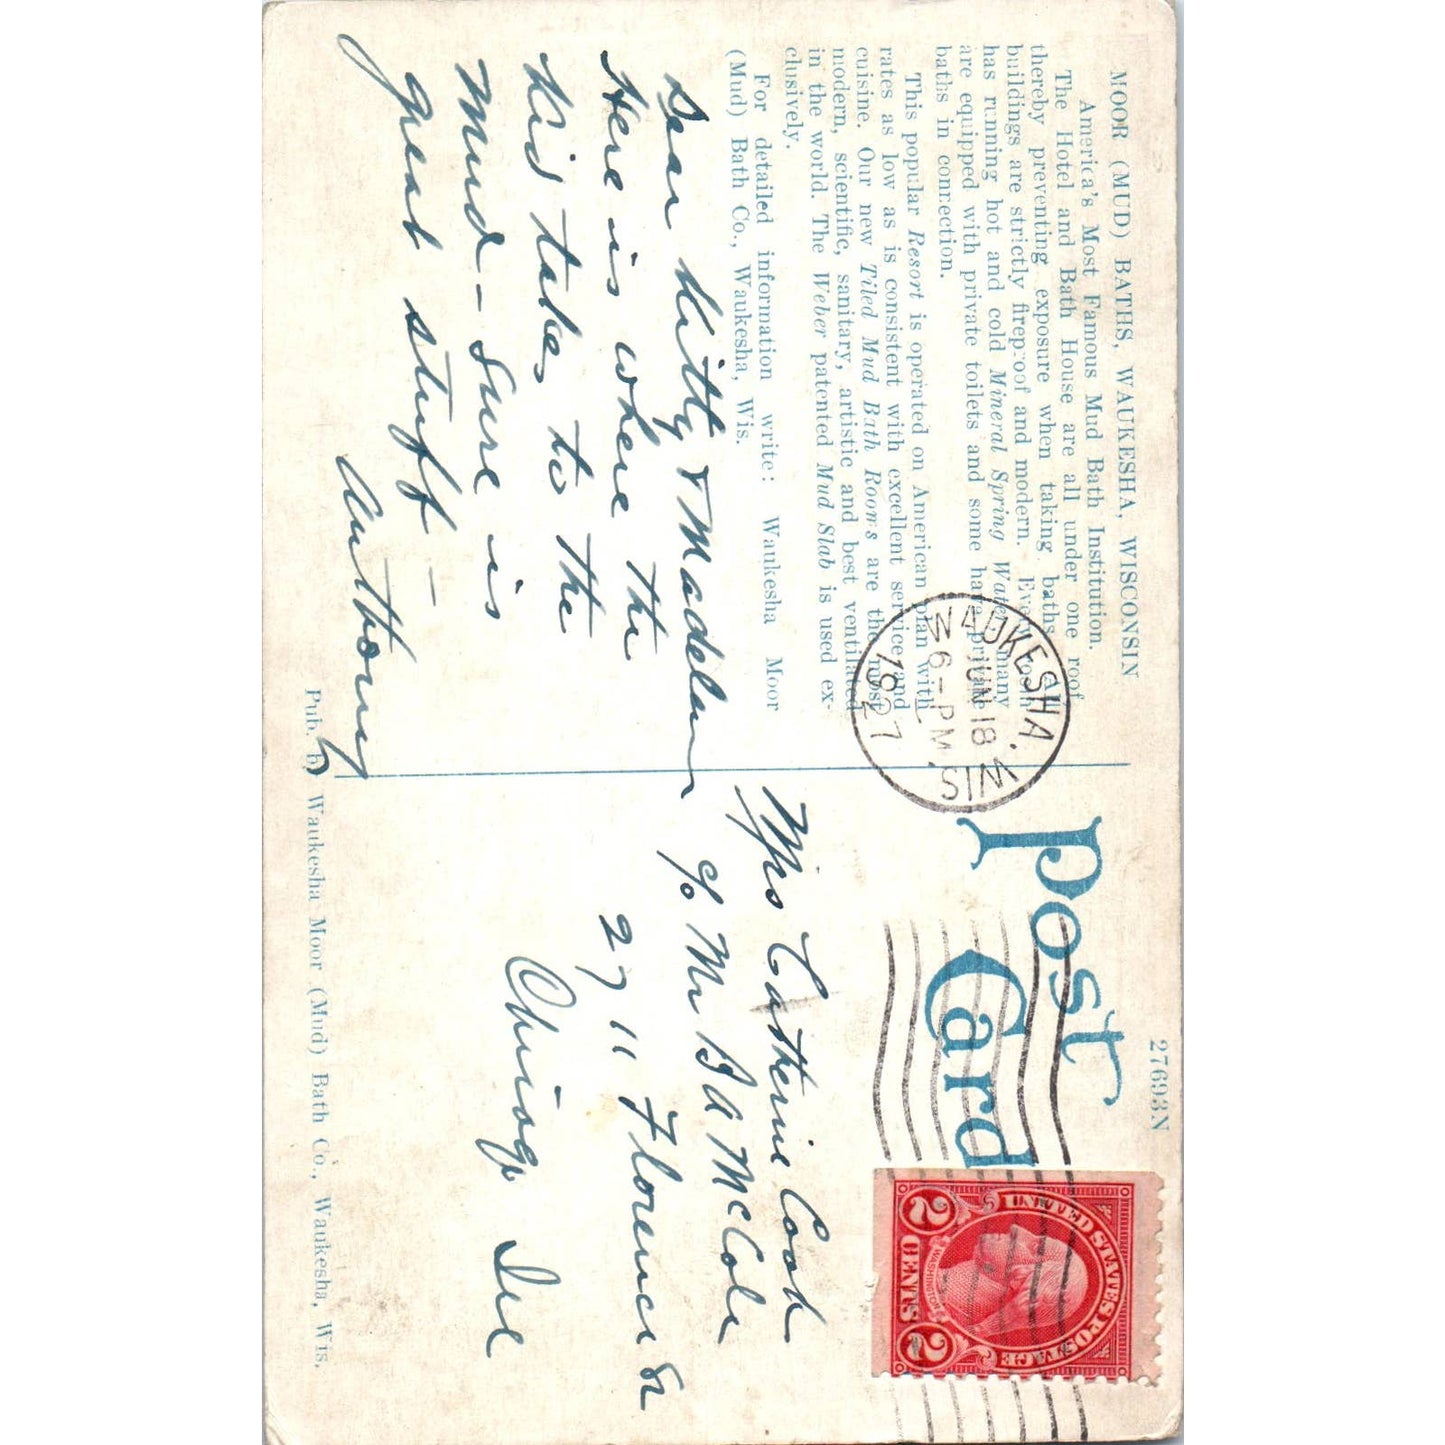 MOOR (MUD) BATHS, WAUKESHA, WISCONSIN
America's Most Famous Mud Bath Institution.
The Hotel and Bath House are all under one roof
thereby preventing exposure when taking baths. All
buildings are strictly fireproof and modern. Every room
has running hot and cold Mineral Spring Water, many
are equipped with private toilets and some have private
baths in connection.
This popular Resort is operated on American plan with
rates as low as is consistent with excellent service and
cuisine. Our new Tiled Mud Bath Rooms are the most
modern, scientific, sanitary, artistic and best ventilated
in the world. The Weber patented Mud Slab is used ex-
clusively.
For detailed information write: Waukesha Moor
(Mud) Bath Co., Waukesha, Wis.
Dear Kitty & Madelan
Here is where the
Kid takes to the
Mud - Sure is
great stuff -
Anthony
WAUKESHA, WIS.
JUN 18
6-PM
1927
Post
Card
27693N
UNITED STATES POSTAGE
WASHINGTON
2 CENTS 2
Miss Catherine Cook
c/o Mr B A McCole
2711 Florence St
Chicago Ill
Pub. by Waukesha Moor (Mud) Bath Co., Waukesha, Wis.